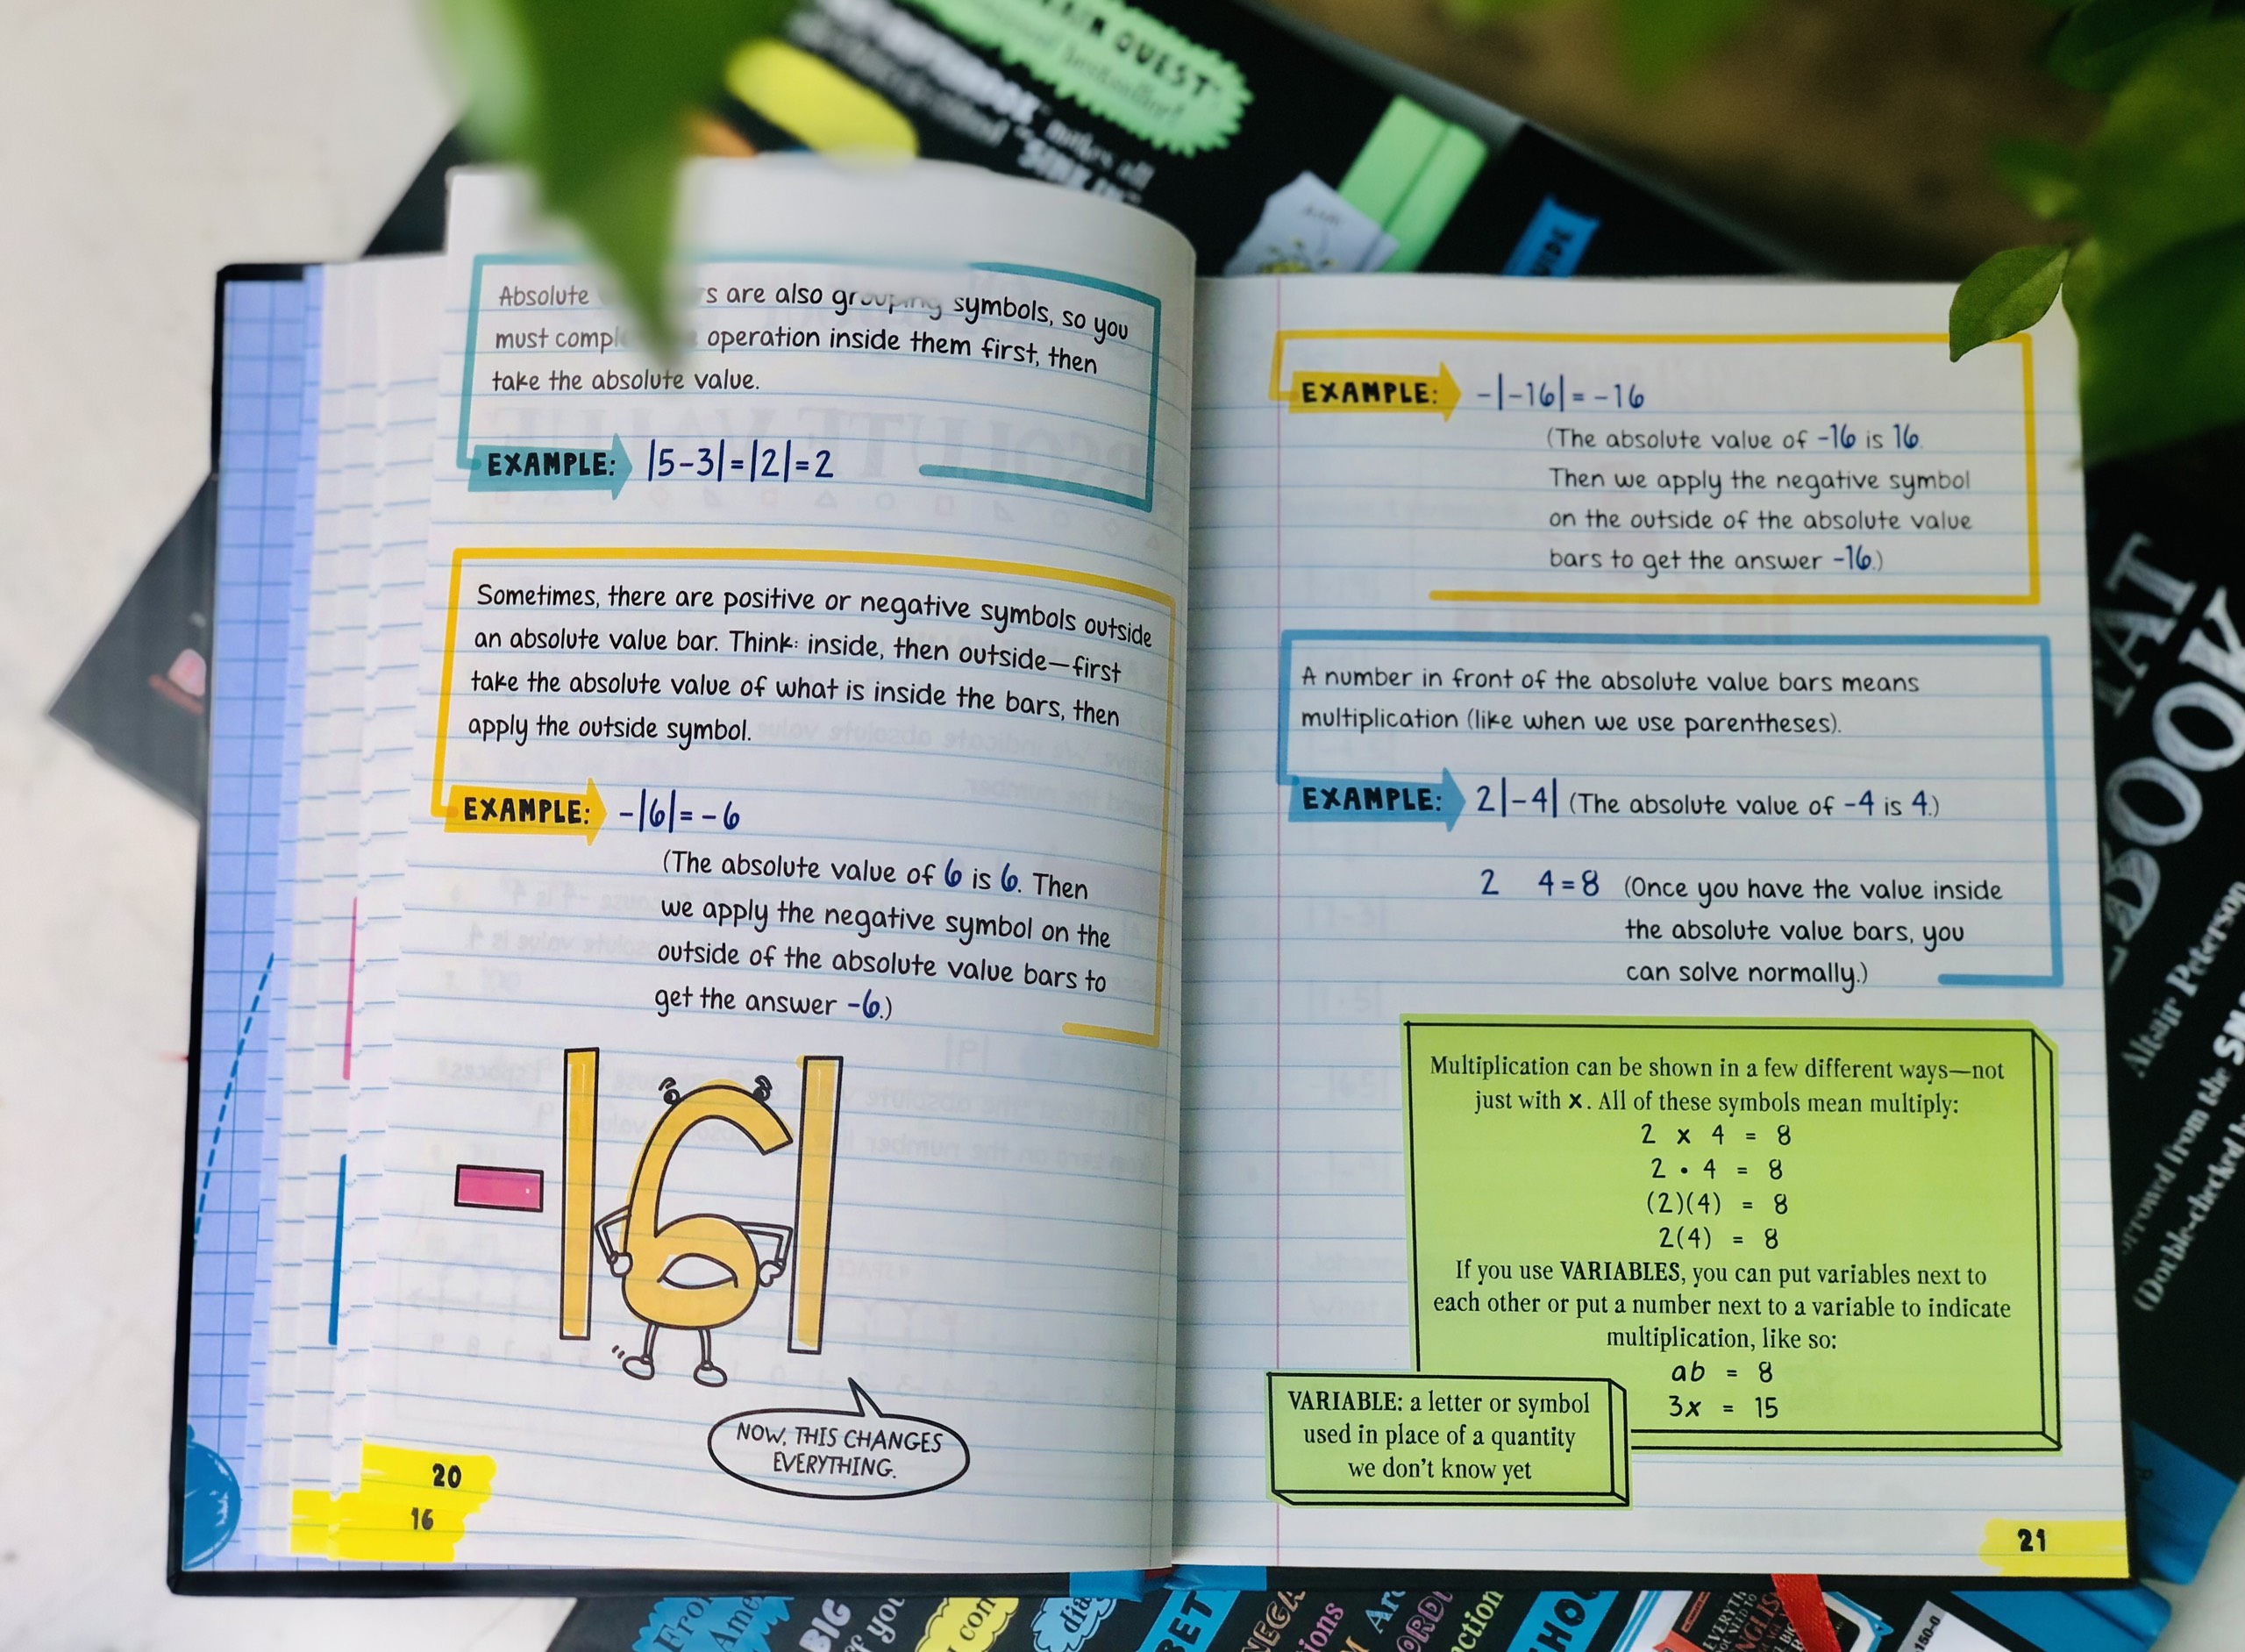 Absolute s are also grouping symbols, so you
must operation inside them first, then
take the absolute value.
EXAMPLE: |5-3|=|2|=2
Sometimes, there are positive or negative symbols outside
an absolute value bar. Think: inside, then outside—first
take the absolute value of what is inside the bars, then
apply the outside symbol.
EXAMPLE: -|6|= -6
(The absolute value of 6 is 6. Then
we apply the negative symbol on the
outside of the absolute value bars to
get the answer -6.)
- |6|
NOW, THIS CHANGES
EVERYTHING.
20
16
EXAMPLE: -|-16|= -16
(The absolute value of -16 is 16.
Then we apply the negative symbol
on the outside of the absolute value
bars to get the answer -16.)
A number in front of the absolute value bars means
multiplication (like when we use parentheses).
EXAMPLE: 2|-4| (The absolute value of -4 is 4.)
2 4=8 (Once you have the value inside
the absolute value bars, you
can solve normally.)
Multiplication can be shown in a few different ways—not
just with x. All of these symbols mean multiply:
2 x 4 = 8
2 • 4 = 8
(2)(4) = 8
2(4) = 8
If you use VARIABLES, you can put variables next to
each other or put a number next to a variable to indicate
multiplication, like so:
ab = 8
3x = 15
VARIABLE: a letter or symbol
used in place of a quantity
we don't know yet
21
QUEST
makes all
Altair Peterson
from the
(Double-checked
BIG